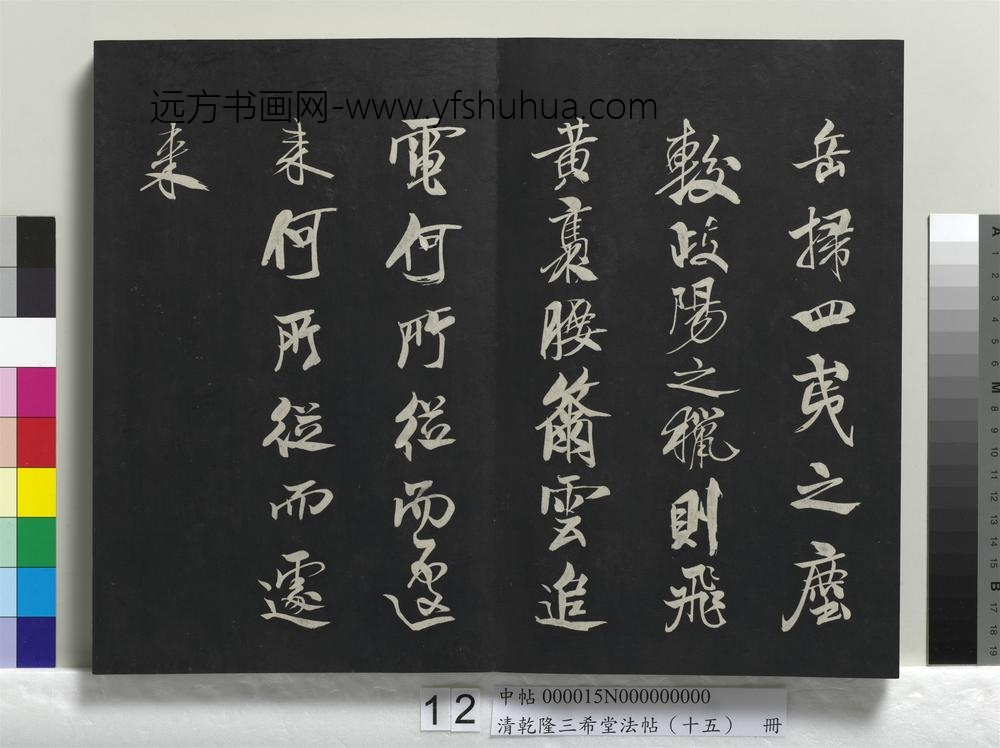 远方书画网-www.yfshuhua.com
岳掃四夷之塵
較歧陽之獵則飛
黃褭腰籋雲追
電何所從而遽
来何所從而遽
来
12
中帖 000015N000000000
清乾隆三希堂法帖（十五） 冊
A 1 2 3 4 5 6 M 8 9 10 11 12 13 14 15 B 17 18 19